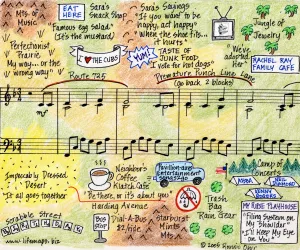 Mts. of Music
EAT HERE
Sara's Snack Shop
"Famous egg salad"
(It's the mustard)
Sara's Sayings
"If you want to be happy, act happy"
"Where the shoe fits... it hurts"
Jungle of Jewelry
Perfectionist Prairie
My way... or the wrong way"
I ♥ THE CUBS
YUM!
TASTE OF JUNK FOOD
I vote for hot dogs"
We've adopted
RACHEL RAY FAMILY CAFE
Route 725
Premature Punch Line Lane
(Go back 2 blocks)
Impeccably Dressed Desert
It all goes together
Neighbor's Coffee Klatch Café
Be there, or it's about you
Camp of Concerts
ABBA
NEIL DIAMOND
KENNY ROGERS
Scrabble Street
Hardanger Avenue
BUS STOP
Dial-A-Bus
$2/ride
Starburst Mints Mts.
Trash Bag Rain Gear
MY RUDE PLAYHOUSE
"Filing System on My Shoulder"
"I'll Keep My Eye on You"
www.lifemaps.biz